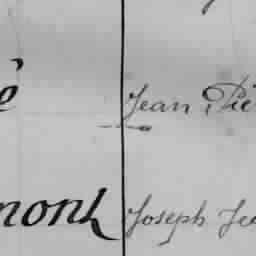 é Jean Pie
mont Joseph Je